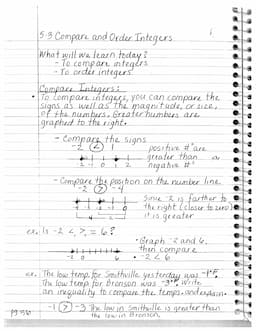 5-3 Compare and Order Integers
What will we learn today?
- To compare integers
- To order integers
Compare Integers:
• To compare integers, you can compare the
signs as well as the magnitude, or size,
of the numbers. Greater numbers are
graphed to the right.
- Compare the signs
-2 < 1
positive #'s are
greater than
negative #'s
-2 -1 0 1 2
- Compare the position on the number line
-2 > -4
Since -2 is farther to
the right (closer to zero)
it is greater
ex. Is -2 <, >, = 6?
• Graph -2 and 6,
then compare
• -2 < 6
ex. The low temp. for Smithville yesterday was -1°F.
The low temp for Bronson was -3°F. Write
an inequality to compare the temps. and explain.
-1 > -3 The low in Smithville is greater than
the low in Bronson.